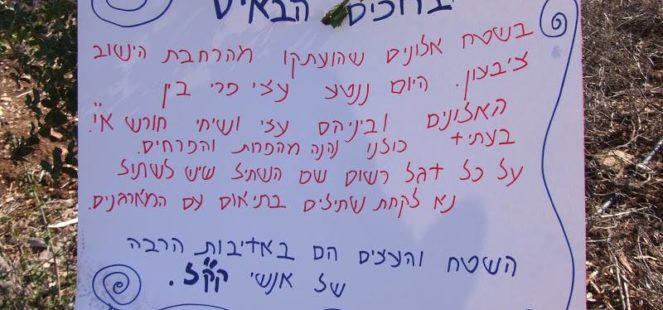 ברוכים הבאים
בשטח אלונים שהועתקו מהרחבת הישוב
ציבעון. היום ננטע עצי פרי בין
האלונים וביניהם עצי ושיחי חורש א"י.
בעתיד כולנו נהנה מהפרות והפרחים.
על כל דגל רשום שם השתיל שיש לשתול
נא לקחת שתילים בתיאום עם המארגנים.
השטח והעצים הם באדיבות הרבה
של אנשי קק"ל.